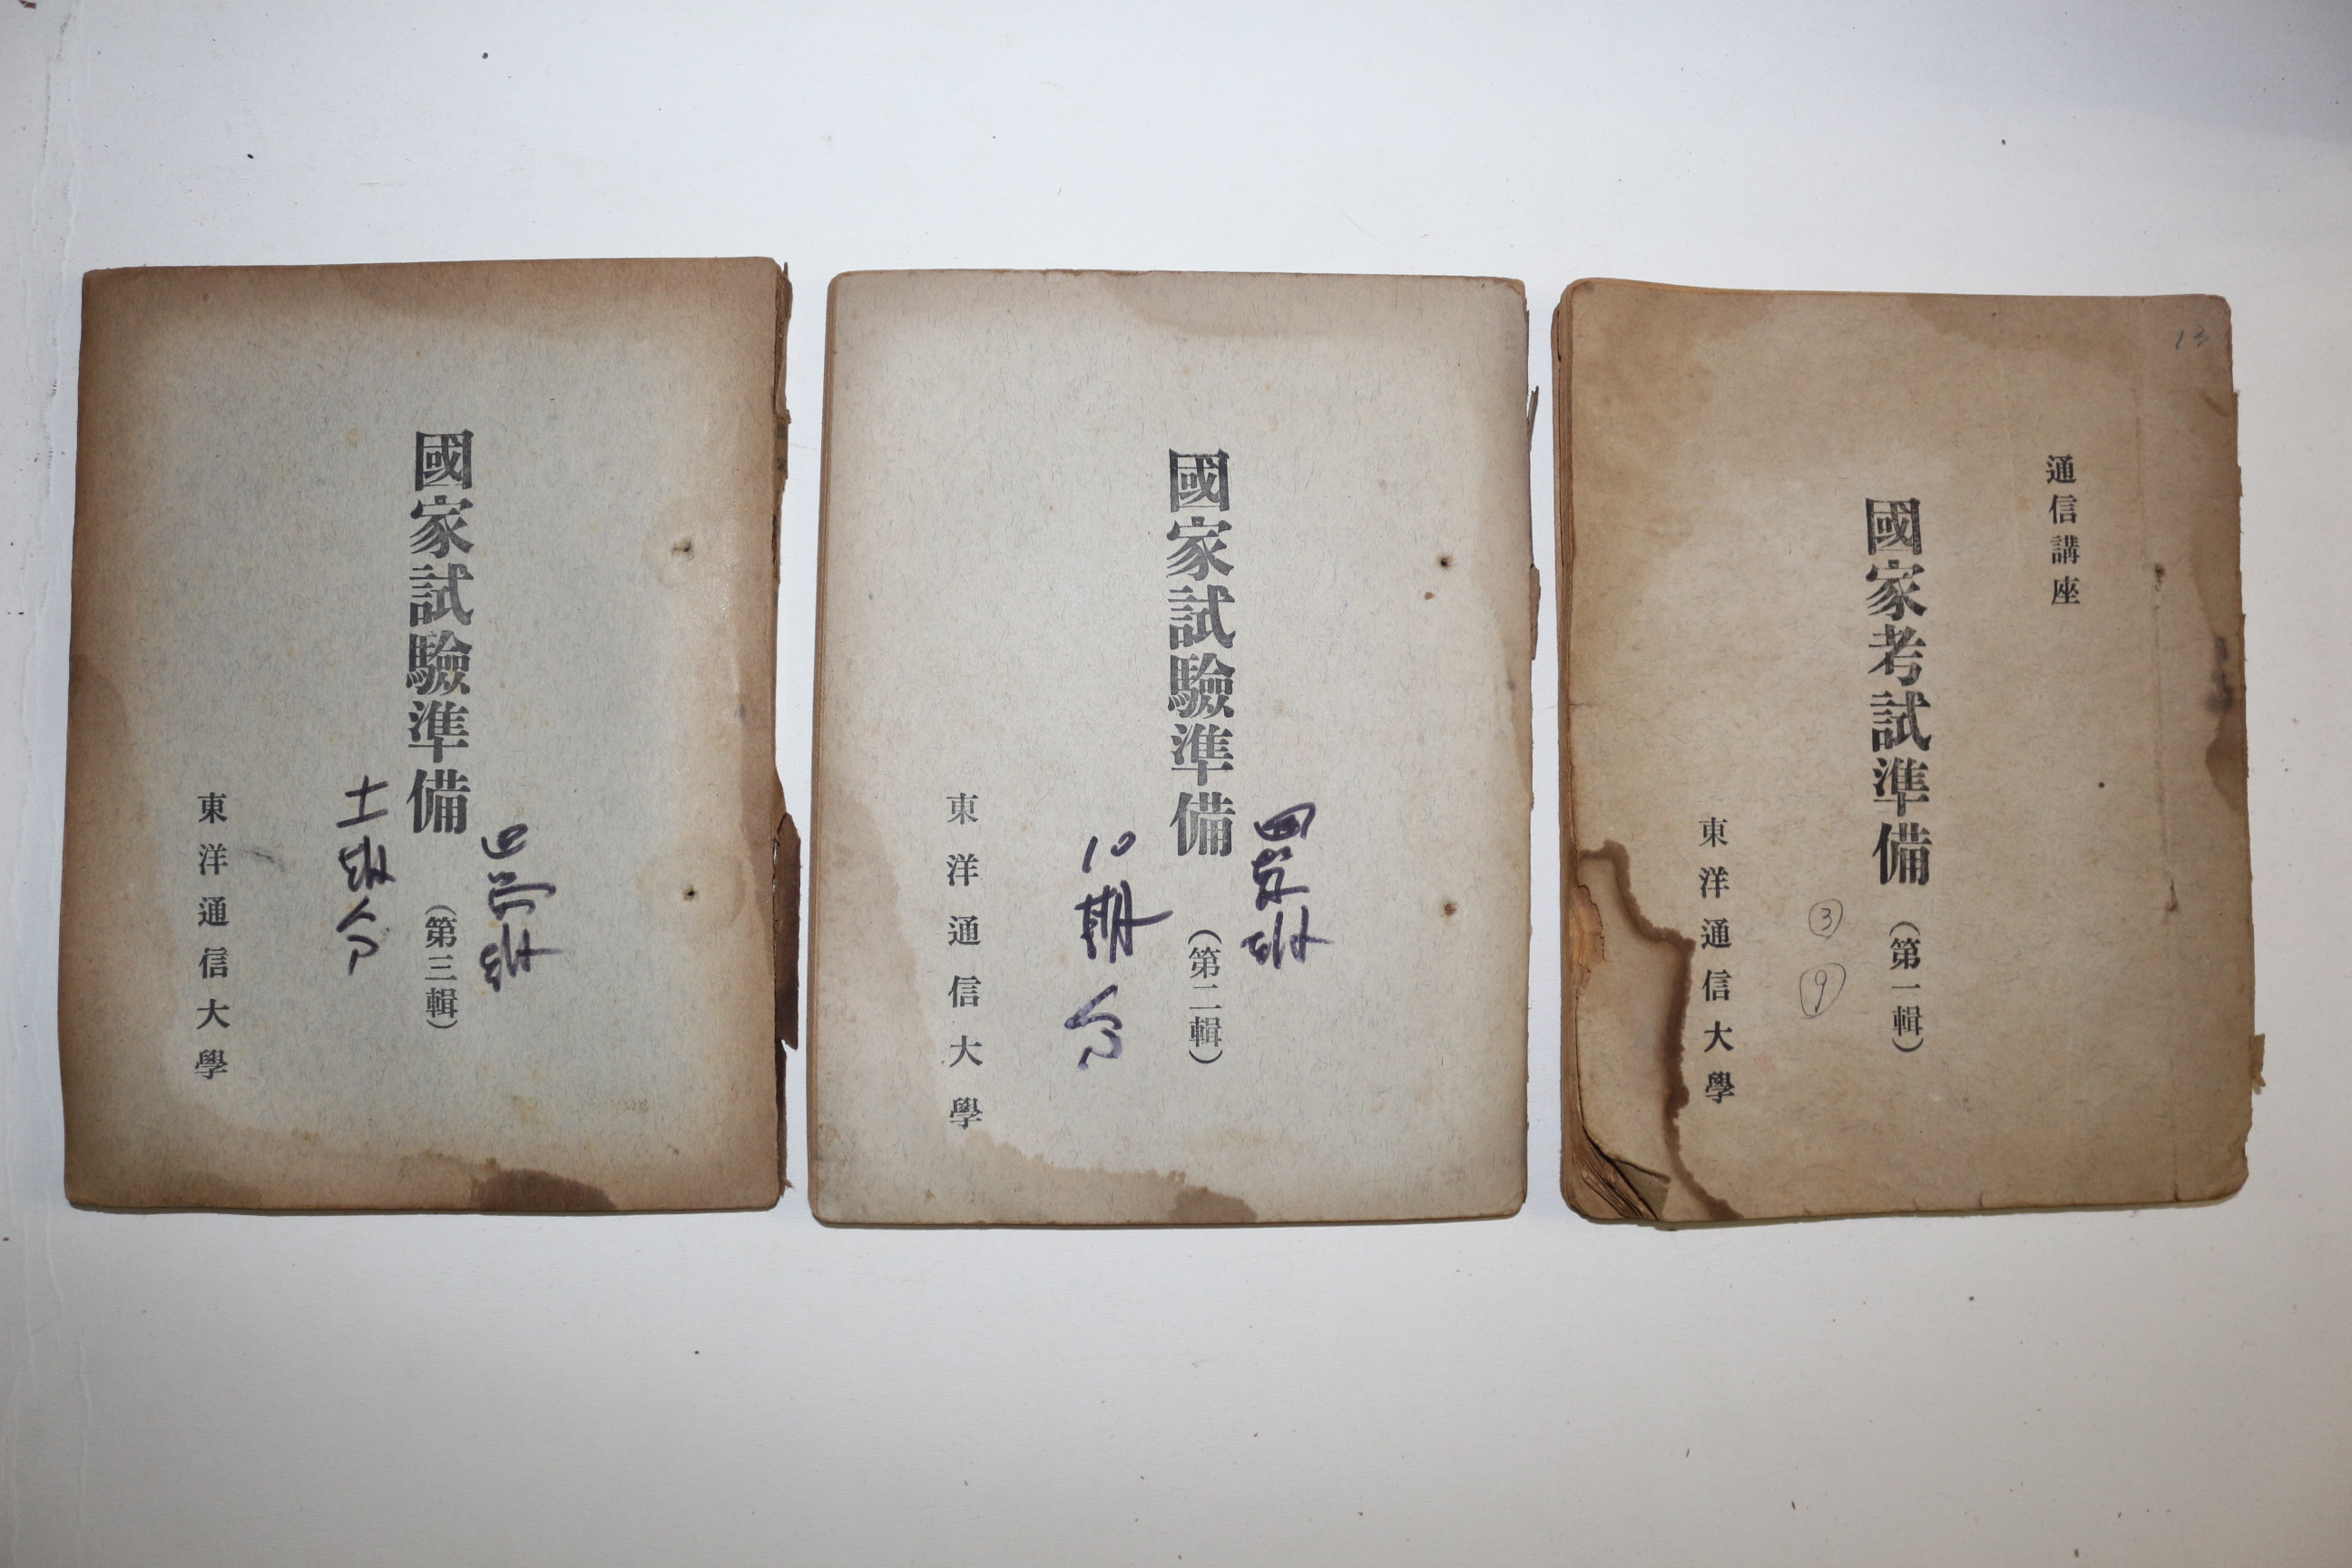 13
通信講座
國家考試準備（第一輯）
③
⑨
東洋通信大學
國家試驗準備（第二輯）
10期
東洋通信大學
國家試驗準備（第三輯）
東洋通信大學